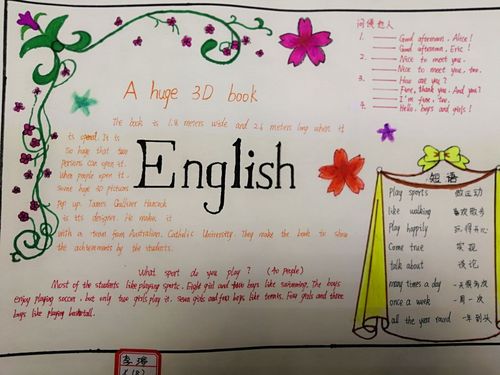 问候他人
1. —— Good afternoon, Alice!
—— Good afternoon, Eric!
2. —— Nice to meet you.
—— Nice to meet you, too.
3. —— How are you?
—— Fine, thank you. And you?
—— I'm fine, too.
4. —— Hello, boys and girls!
A huge 3D book
The book is 1.8 meters wide and 2.6 meters long when it
is opened. It is
so huge that two
persons can open it.
When people open it.
Some huge 3D pictures
Pop up. James Gulliver Hancock
is its designer. He makes it
with a team from Australian Catholic University. They make the book to show
the achievements by the students.
English
What sport do you play? (40 people)
Most of the students like playing sports. Eight girl and four boys like swimming. The boys
enjoy playing soccer, but only two girls play it. Seven girls and four boys like tennis. Four girls and three
boys like playing basketball.
短语
Play sports 做运动
like walking 喜欢散步
Play happily 玩得开心
Come true 实现
talk about 谈论
many times a day 一天很多次
once a week 一周一次
all the year round 一年到头